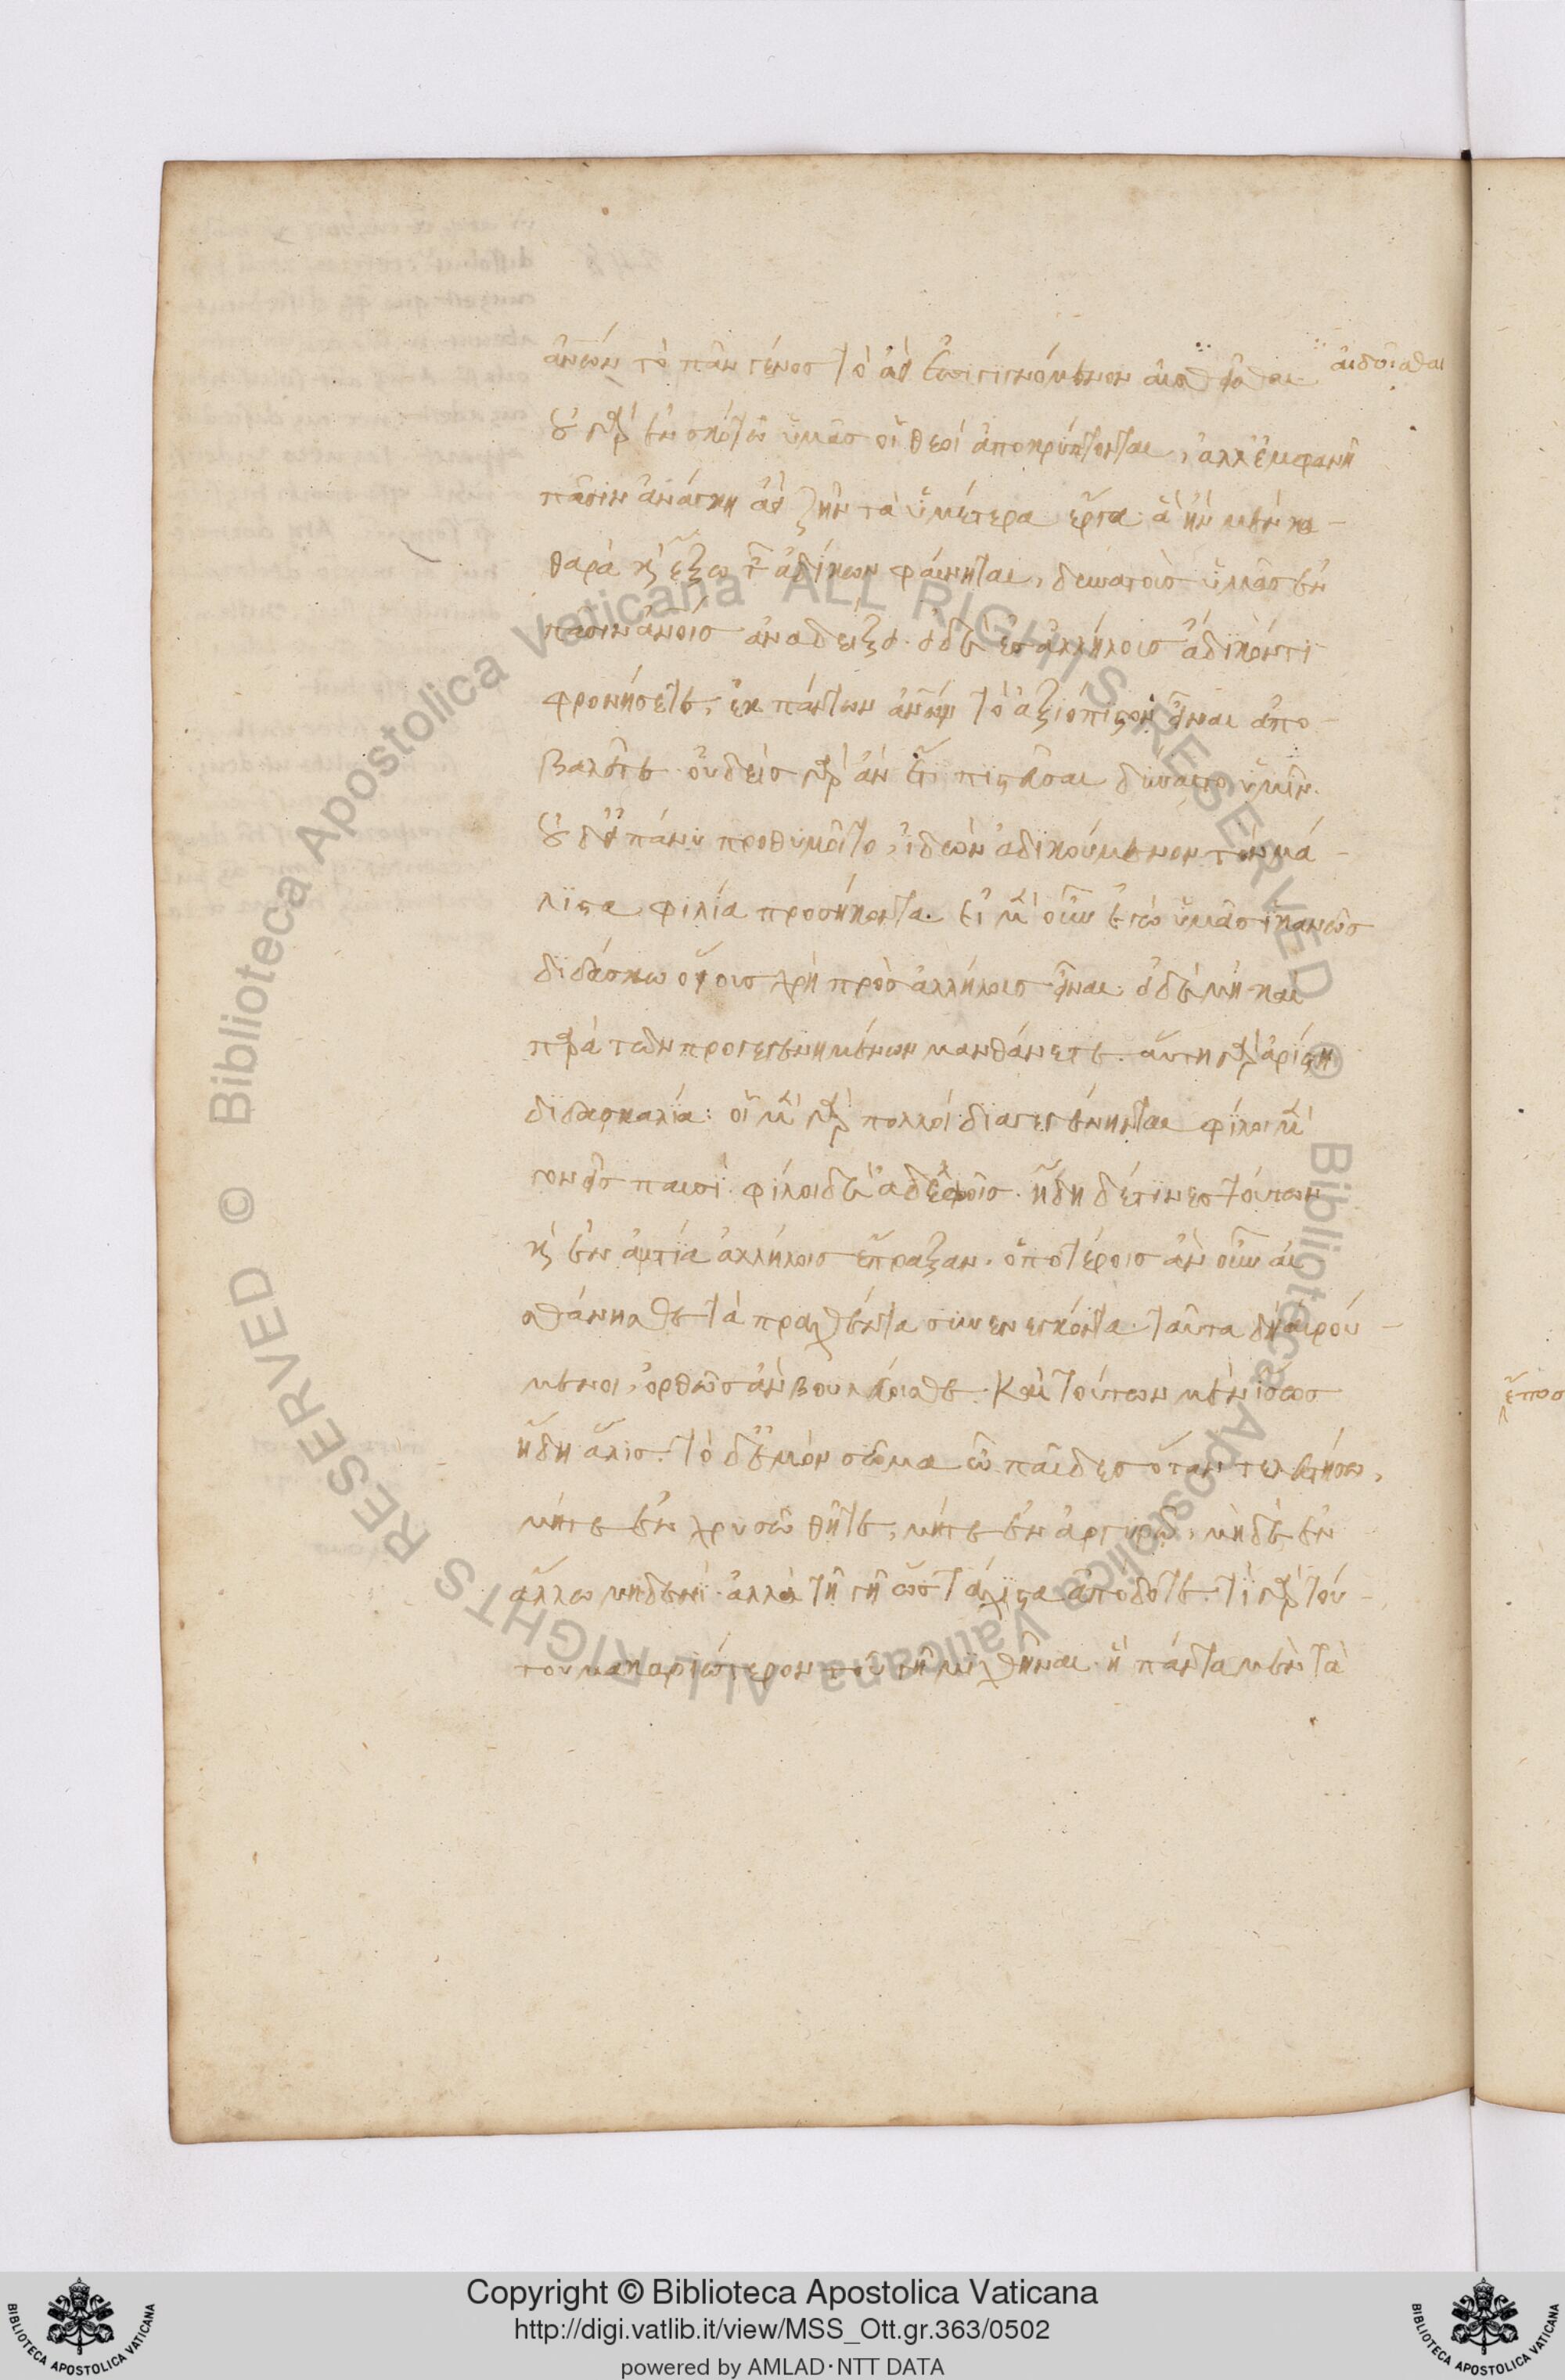 ἀνων τὸ πᾶν γένος τὸ ἀεὶ ἐπιγιγνόμενον αἰσθέσθαι
αἰδεῖσθαι
οὐ γὰρ ἐν σκότω ὑμᾶς οἱ θεοὶ ἀποκρύπτονται, ἀλλ' ἐμφανῆ
πᾶσιν ἀνάγκη ἀεὶ ζῆν τὰ ὑμέτερα ἔργα· ἃ ἢν μὲν κα-
θαρὰ κ̀ ἔξω τ̃ ἀδίκων φαίνηται, δυνατοὺς ὑμᾶς ἐν
πᾶσιν ἀνοις ἀναδείξει· εἰ δὲ εἰς ἀλλήλους ἄδικόν τι
φρονήσετε, ἐκ πάντων ἀνων τὸ ἀξιόπιστον εἶναι ἀπο-
βαλεῖτε· οὐδεὶς γὰρ ἂν ἔτι πιστεῦσαι δύναιτο ὑμῖν.
οὐδ' εἰ πάνυ προθυμοῖτο, ἰδὼν ἀδικούμενον τὸν μά-
λιστα φιλία προσήκοντα. εἰ μὲν οὖν ἐγὼ ὑμᾶς ἱκανῶς
διδάσκω οἵους χρὴ πρὸς ἀλλήλους εἶναι· εἰ δὲ μὴ και
παρὰ τῶν προγεγενημένων μανθάνετε. αὕτη γὰρ ἀρίστη
διδασκαλία: οἱ μὲν γὰρ πολλοὶ διαγεγένηνται φίλοι μὲν
γονεῖς παισὶ· φίλοι δὲ ἀδελφοῖς. ἤδη δέ τινες τούτων
κ̀ ἐναντία ἀλλήλοις ἔπραξαν. ὁποτέροις ἂν οὖν αἰ
σθάνησθε τὰ πραχθέντα συνενεγκόντα· ταῦτα δὴ αἱρού-
μενοι, ὀρθῶς ἂν βουλεύοισθε. Καὶ τούτων μὲν ἴσως
ἤδη ἅλις. τὸ δ' ἐμὸν σῶμα ὦ παῖδες ὅταν τελευτήσω,
μήτε ἐν χρυσῶ θῆτε, μήτε ἐν ἀργυρῶ, μηδὲ ἐν
ἄλλω μηδενὶ· ἀλλὰ τῆ γῆ ὡς τάχιστα ἀπόδοτε. τί γὰρ τού-
του μακαριώτερον τοῦ γῆ μιχθῆναι· ἣ πάντα μὲν τὰ
ἔπος
© Biblioteca Apostolica Vaticana ALL RIGHTS RESERVED © Biblioteca Apostolica Vaticana ALL RIGHTS RESERVED
BIBLIOTECA APOSTOLICA VATICANA
Copyright © Biblioteca Apostolica Vaticana
http://digi.vatlib.it/view/MSS_Ott.gr.363/0502
powered by AMLAD·NTT DATA
BIBLIOTECA APOSTOLICA VATICANA